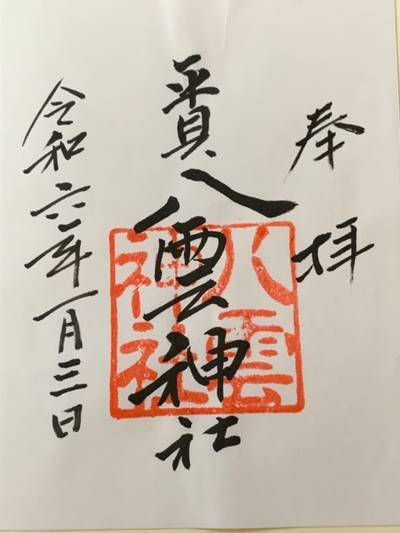 奉拝
平貝八雲神社
八雲
神社
令和六年一月三日